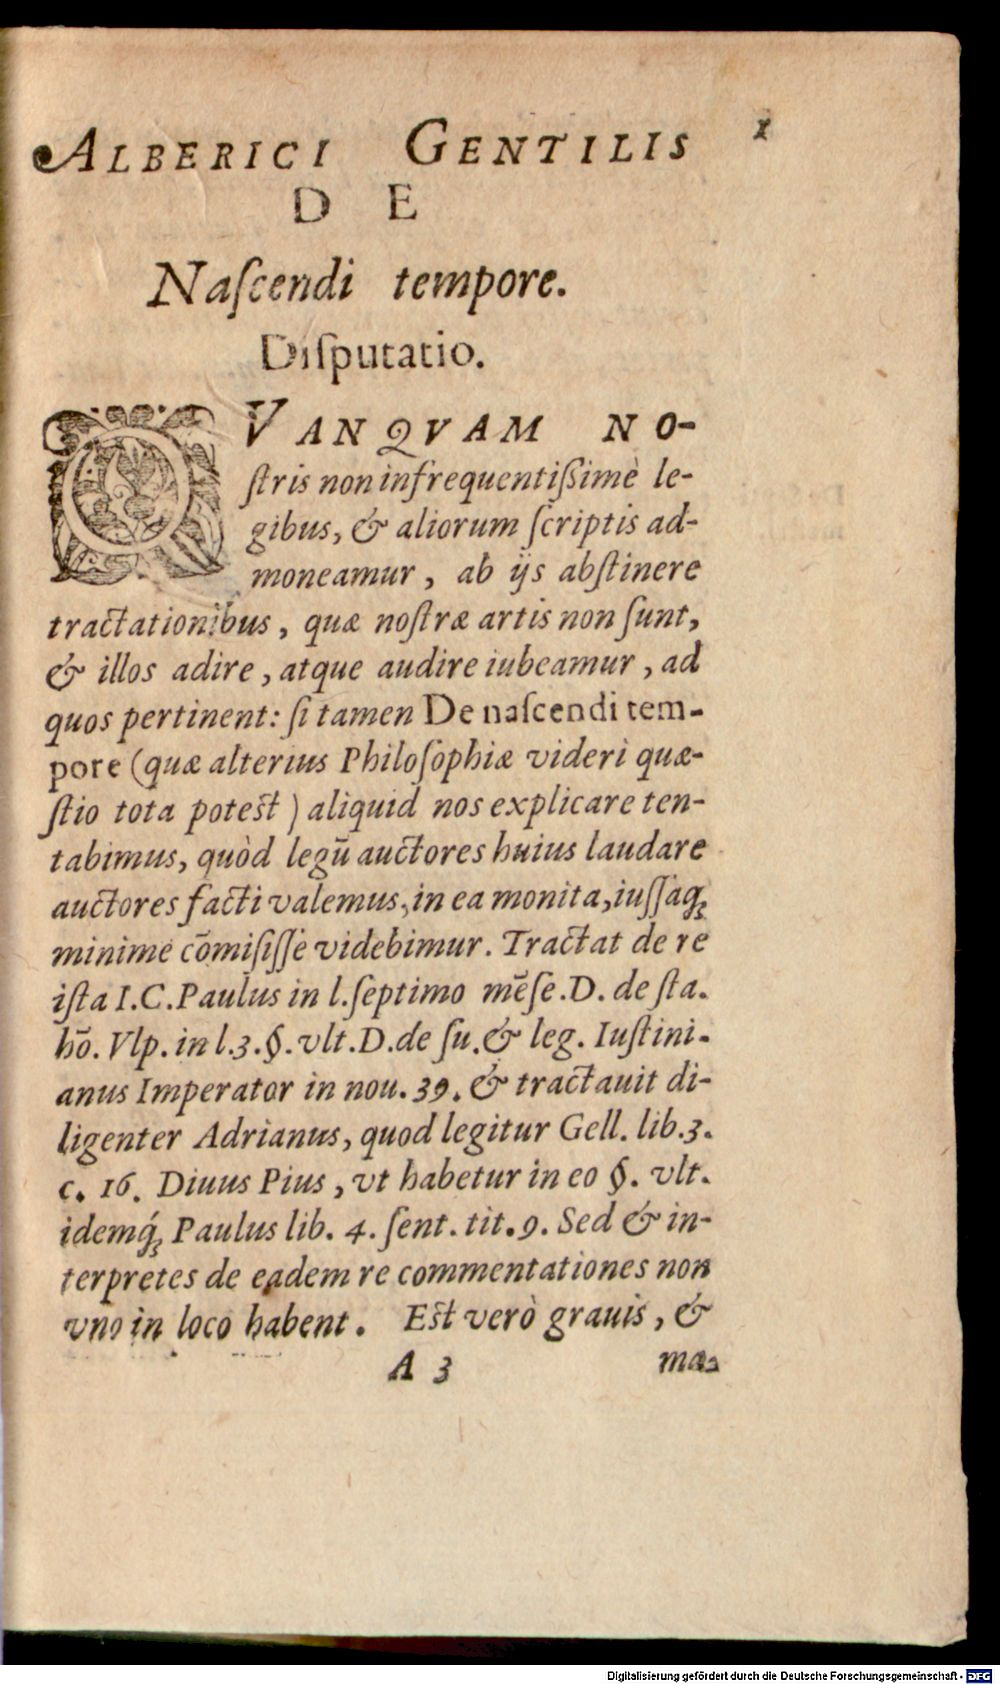 ALBERICI GENTILIS 1
DE
Naſcendi tempore.
Diſputatio.
QVANQVAM NO-
ſtris non infrequentiſſimè le-
gibus, & aliorum ſcriptis ad-
moneamur, ab ijs abſtinere
tractationibus, quæ noſtræ artis non ſunt,
& illos adire, atque audire iubeamur, ad
quos pertinent: ſi tamen De naſcendi tem-
pore (quæ alterius Philoſophiæ videri quæ-
ſtio tota poteſt) aliquid nos explicare ten-
tabimus, quòd legū auctores huius laudare
auctores facti valemus, in ea monita, iuſſaq;
minimè cōmiſiſſe videbimur. Tractat de re
iſta I.C. Paulus in l. ſeptimo mēſe. D. de ſta.
hō. Vlp. in l. 3. §. vlt. D. de ſu. & leg. Iuſtini-
anus Imperator in nou. 39. & tractauit di-
ligenter Adrianus, quod legitur Gell. lib. 3.
c. 16. Diuus Pius, vt habetur in eo §. vlt.
idemq́; Paulus lib. 4. ſent. tit. 9. Sed & in-
terpretes de eadem re commentationes non
vno in loco habent. Eſt verò grauis, &
A 3 ma-
Digitalisierung gefördert durch die Deutsche Forschungsgemeinschaft - DFG